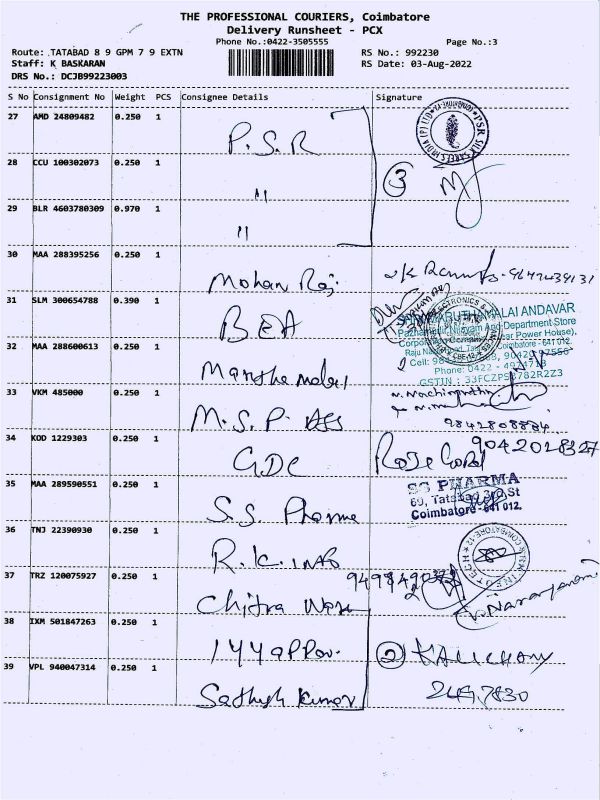 THE PROFESSIONAL COURIERS, Coimbatore
Delivery Runsheet - PCX
Phone No.:0422-3505555
Page No.:3
Route: TATABAD 8 9 GPM 7 9 EXTN
RS No.: 992230
Staff: K BASKARAN
RS Date: 03-Aug-2022
DRS No.: DCJB99223003
S No Consignment No Weight PCS Consignee Details Signature
27 AMD 24809482 0.250 1
P.S.R
28 CCU 100302073 0.250 1
"
3
29 BLR 4603780309 0.970 1
"
30 MAA 288395256 0.250 1
Mohan Raj
31 SLM 300654788 0.390 1
BEA
MARUTHAMALAI ANDAVAR
Pazhamudir Nilayam And Department Store
32 MAA 288600613 0.250 1
Marutha malai
Phone: 0422 -
33 VKM 485000 0.250 1
M.S.P.
9842808884
34 KOD 1229303 0.250 1
GDC
9042028327
35 MAA 289590551 0.250 1
S.S. Pharma
SS PHARMA
69, Tatabad 3rd St
Coimbatore - 641 012.
36 TNJ 22390930 0.250 1
R.K. INFO
37 TRZ 120075927 0.250 1
Chitra
38 IXM 501847263 0.250 1
2
39 VPL 940047314 0.250 1
Sathish Kumar